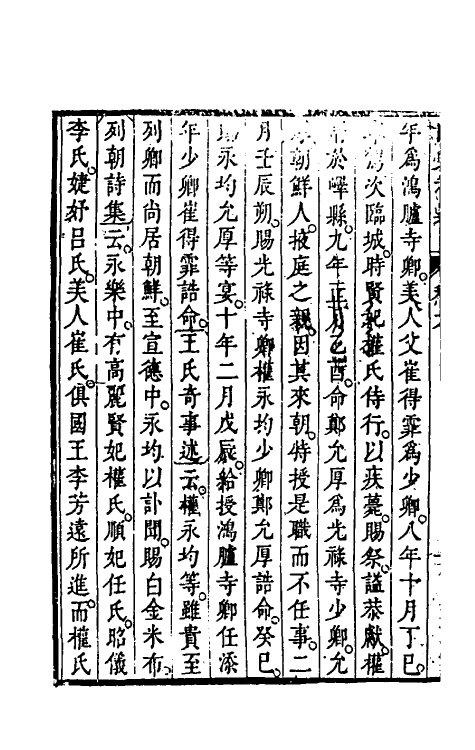 年爲鴻臚寺卿。美人父崔得霏爲少卿。八年十月丁巳。
次臨城。時賢妃權氏侍行。以疾薨。賜祭。諡恭獻。權
於嶧縣。九年十月己酉。命鄭允厚爲光祿寺少卿。允
朝鮮人。掖庭之親。因其來朝。特授是職而不任事。二
月壬辰朔。賜光祿寺卿權永均少卿鄭允厚誥命。癸巳。
永均允厚等宴。十年二月戊辰。給授鴻臚寺卿任添
年少卿崔得霏誥命。王氏奇事述云。權永均等。雖貴至
列卿。而尚居朝鮮。至宣德中。永均以訃聞。賜白金米布。
列朝詩集云。永樂中。有高麗賢妃權氏。順妃任氏。昭儀
李氏。婕妤呂氏。美人崔氏。俱國王李芳遠所進。而權氏